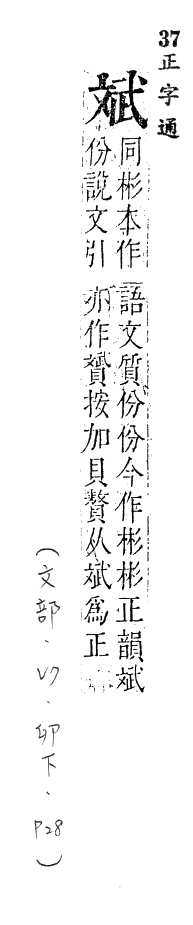 37 正字通
斌
同彬本作
份說文引
語文質份份今作彬彬正韻斌
亦作贇按加貝贅从斌爲正
（文部．卯下．P28）